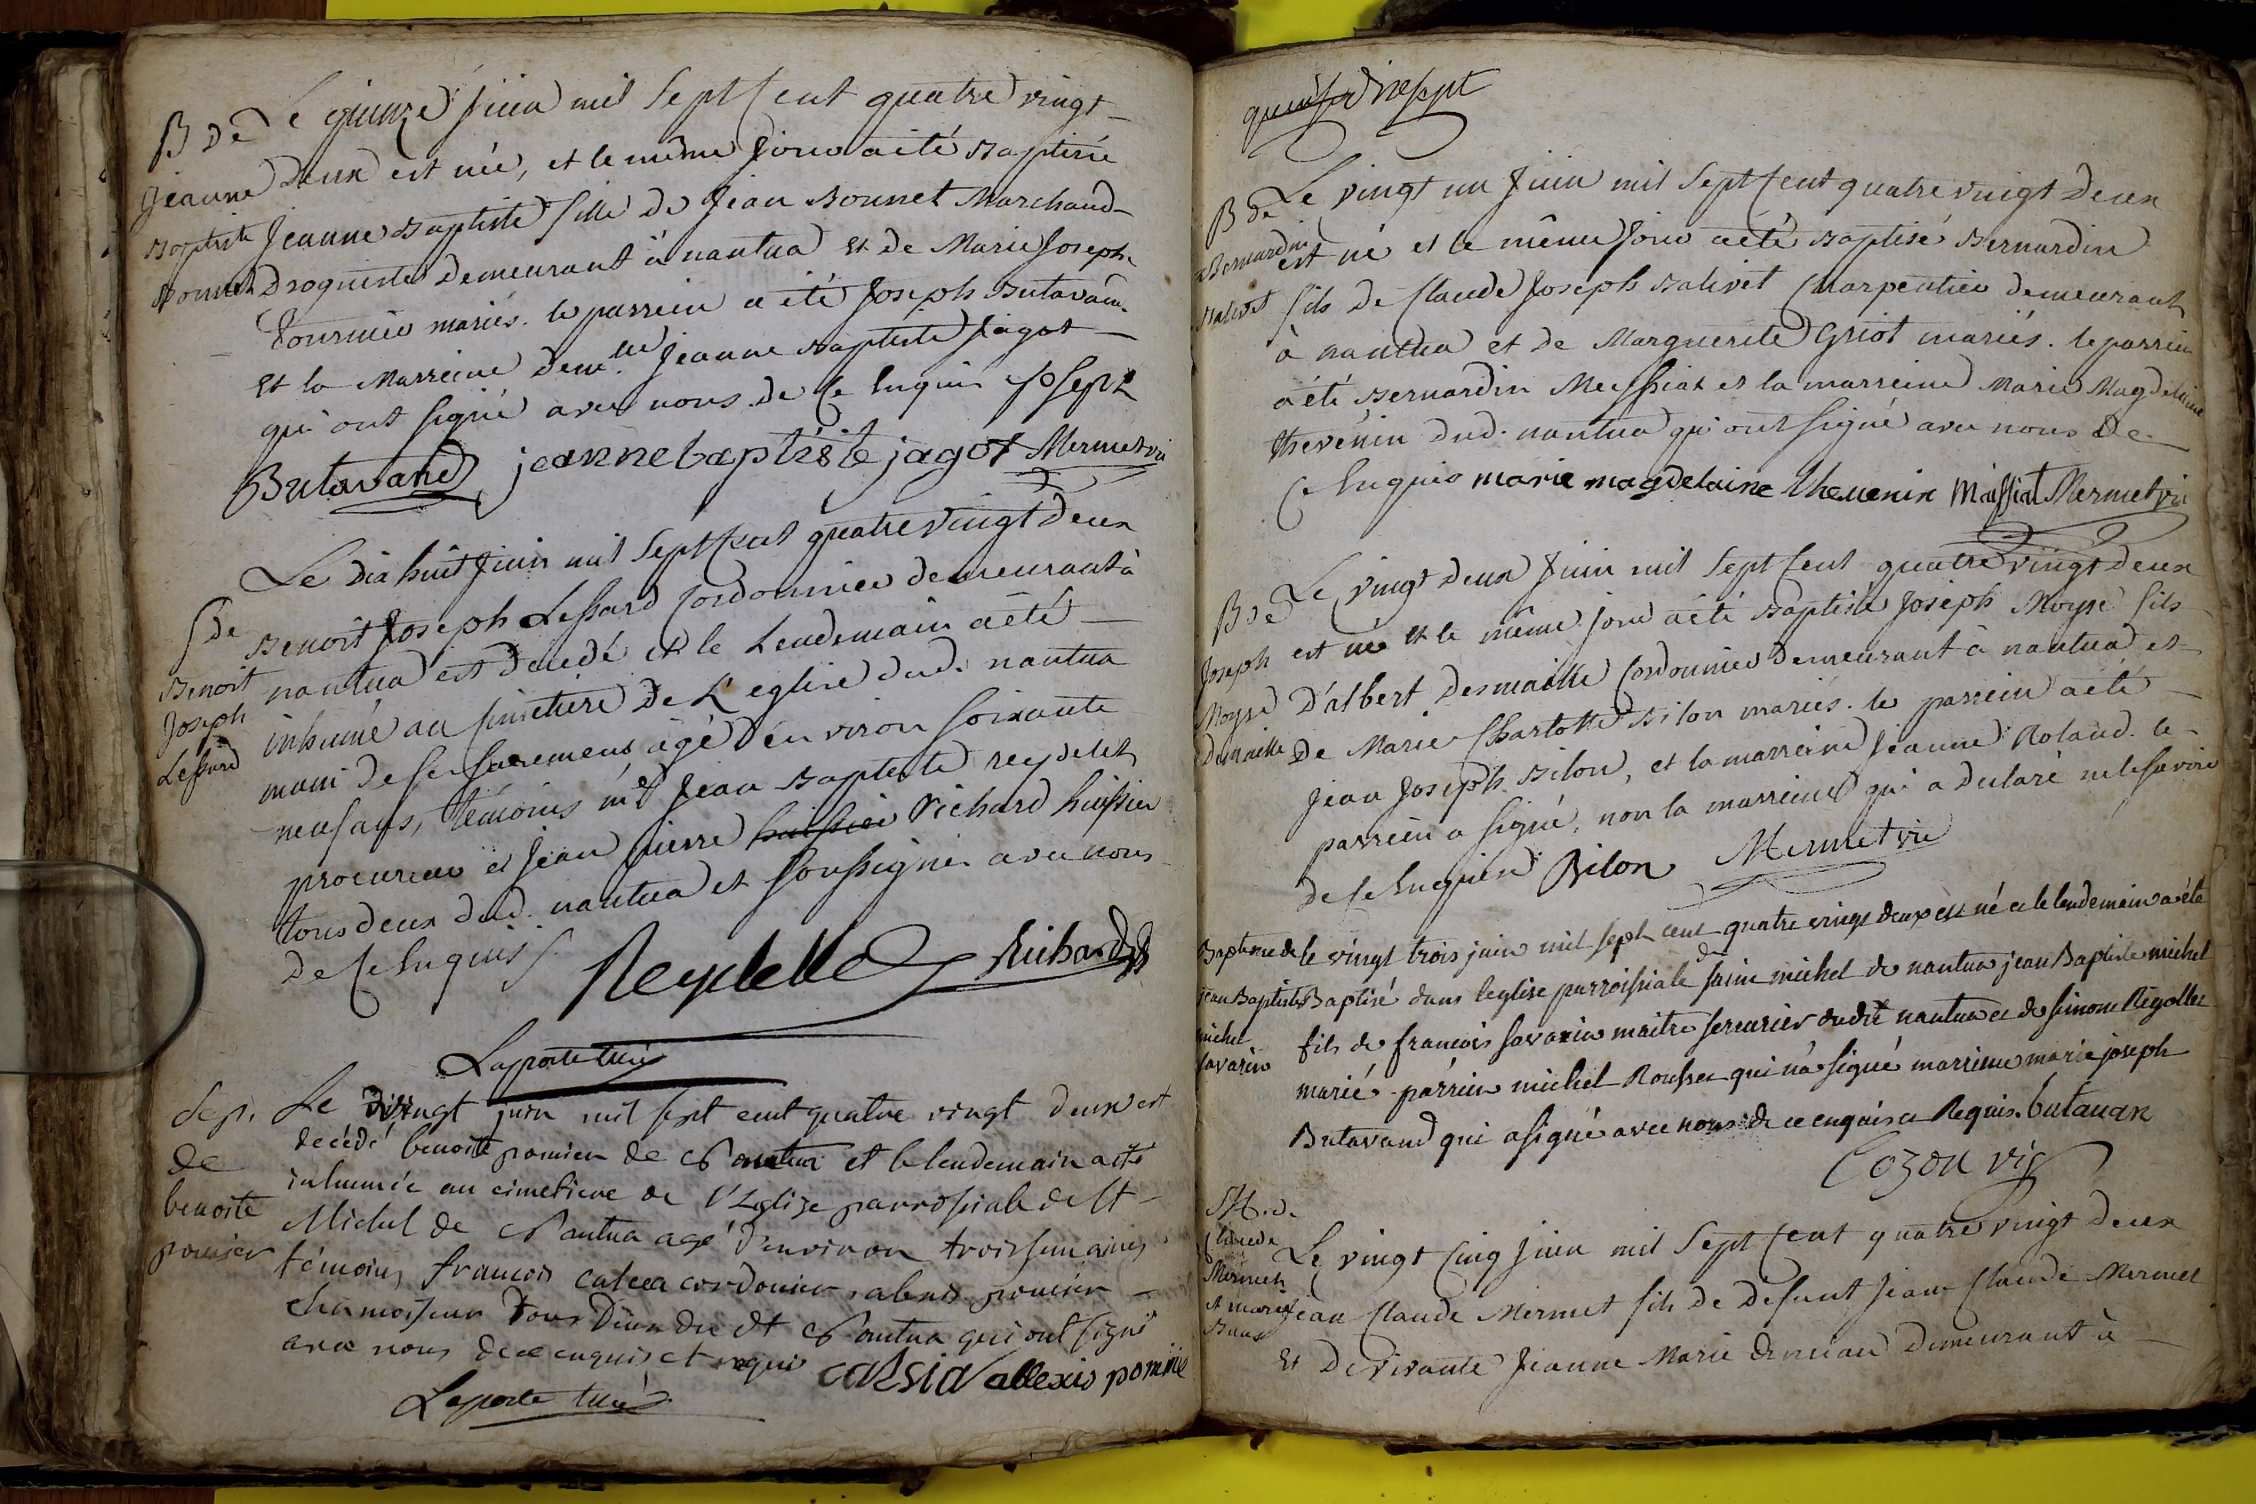 B de
Jeanne
Baptiste
Bonnet
Le quinze juin mil sept cent quatre vingt
deux est née, et le même jour a été Baptisée
Jeanne Baptiste fille de Jean Bonnet Marchand
Droguiste demeurant à nantua et de Marie Joseph
fournier mariés. le parrein a été Joseph Butavand
et la Marreine dem.lle Jeanne Baptiste jagot
qui ont signé avec nous de ce Enquis Joseph
Butavand jeanne baptiste jagot Mermet vic
S de
Benoit
Joseph
Lessard
Le dix huit Juin mil Sept Cent quatre vingt deux
Benoit Joseph Lessard Cordonnier demeurant à
nantua est décedé et le Lendemain a été
inhumé au Cimetiere de L'eglise dud. nantua
muni de ses sacremens âgé d'environ soixante
neuf ans, témoins m.e Jean Baptiste reydelet
procureur et Jean pierre huissier Richard huissier
tous deux dud. nantua et soussignés avec nous
de ce Enquis
Reydellet Richard
Laporte curé
Sep.
de
benoite
pomier
Le vingt juin mil sept cent quatre vingt deux est
decédé benoite pomier de Nantua et le lendemain a été
inhumée au cimetiere de l'Eglise parroissiale de St
Michel de Nantua agé d'environ trois semaines
témoins francois cordonier pomier
chamoiseur tous deux du dt Nantua qui ont signé
avec nous de ce enquis et requis allexis pomié
Laporte curé
dix sept
B de
Bernardin
Balivet
Le vingt un Juin mil Sept Cent quatre vingt deux
est né et le même Jour a été Baptisé Bernardin
fils de Claude Joseph Balivet Charpentier demeurant
à nantua et de Marguerite Griot mariés. le parrein
a été Bernardin Messiat et la marreine Marie Magdeleine
thevenin dud. nantua qui ont signé avec nous de
Ce Enquis marie magdelaine thevenin Maissiat Mermet vic
B de
Joseph
Moyse
Demaille
Le vingt deux Juin mil Sept Cent quatre vingt deux
est né et le même jour a été Baptisé Joseph Moyse fils
D'albert Desmaille Cordonnier Demeurant à nantua et
de Marie Charlotte Bilon mariés. le parrein a été
Jean Joseph Bilon, et la marreine Jeanne Roland. le
parrein a signé, non la marreine qui a declaré ne le savoir
de ce Enquise Bilon Mermet vic
Bapteme de
jean Baptiste
michel
Savarin
le vingt trois juin mil sept cent quatre vingt deux est né et le lendemain a été
Baptisé dans leglise parroissiale de saint michel de nantua jean Baptiste michel
fils de francois Savarin maitre serrurier dudit nantua et de simone Regottet
marié. parrein michel Rousset qui n'a signé marreine marie joseph
Butavand qui a signé avec nous de ce enquis et Requis. butavan
Cozon vic
M. de
Claude
Mermet
et marie
Le vingt Cinq Juin mil Sept Cent quatre vingt deux
Jean Claude Mermet fils de defunt Jean Claude Mermet
et de vivante Jeanne Marie demeurant à